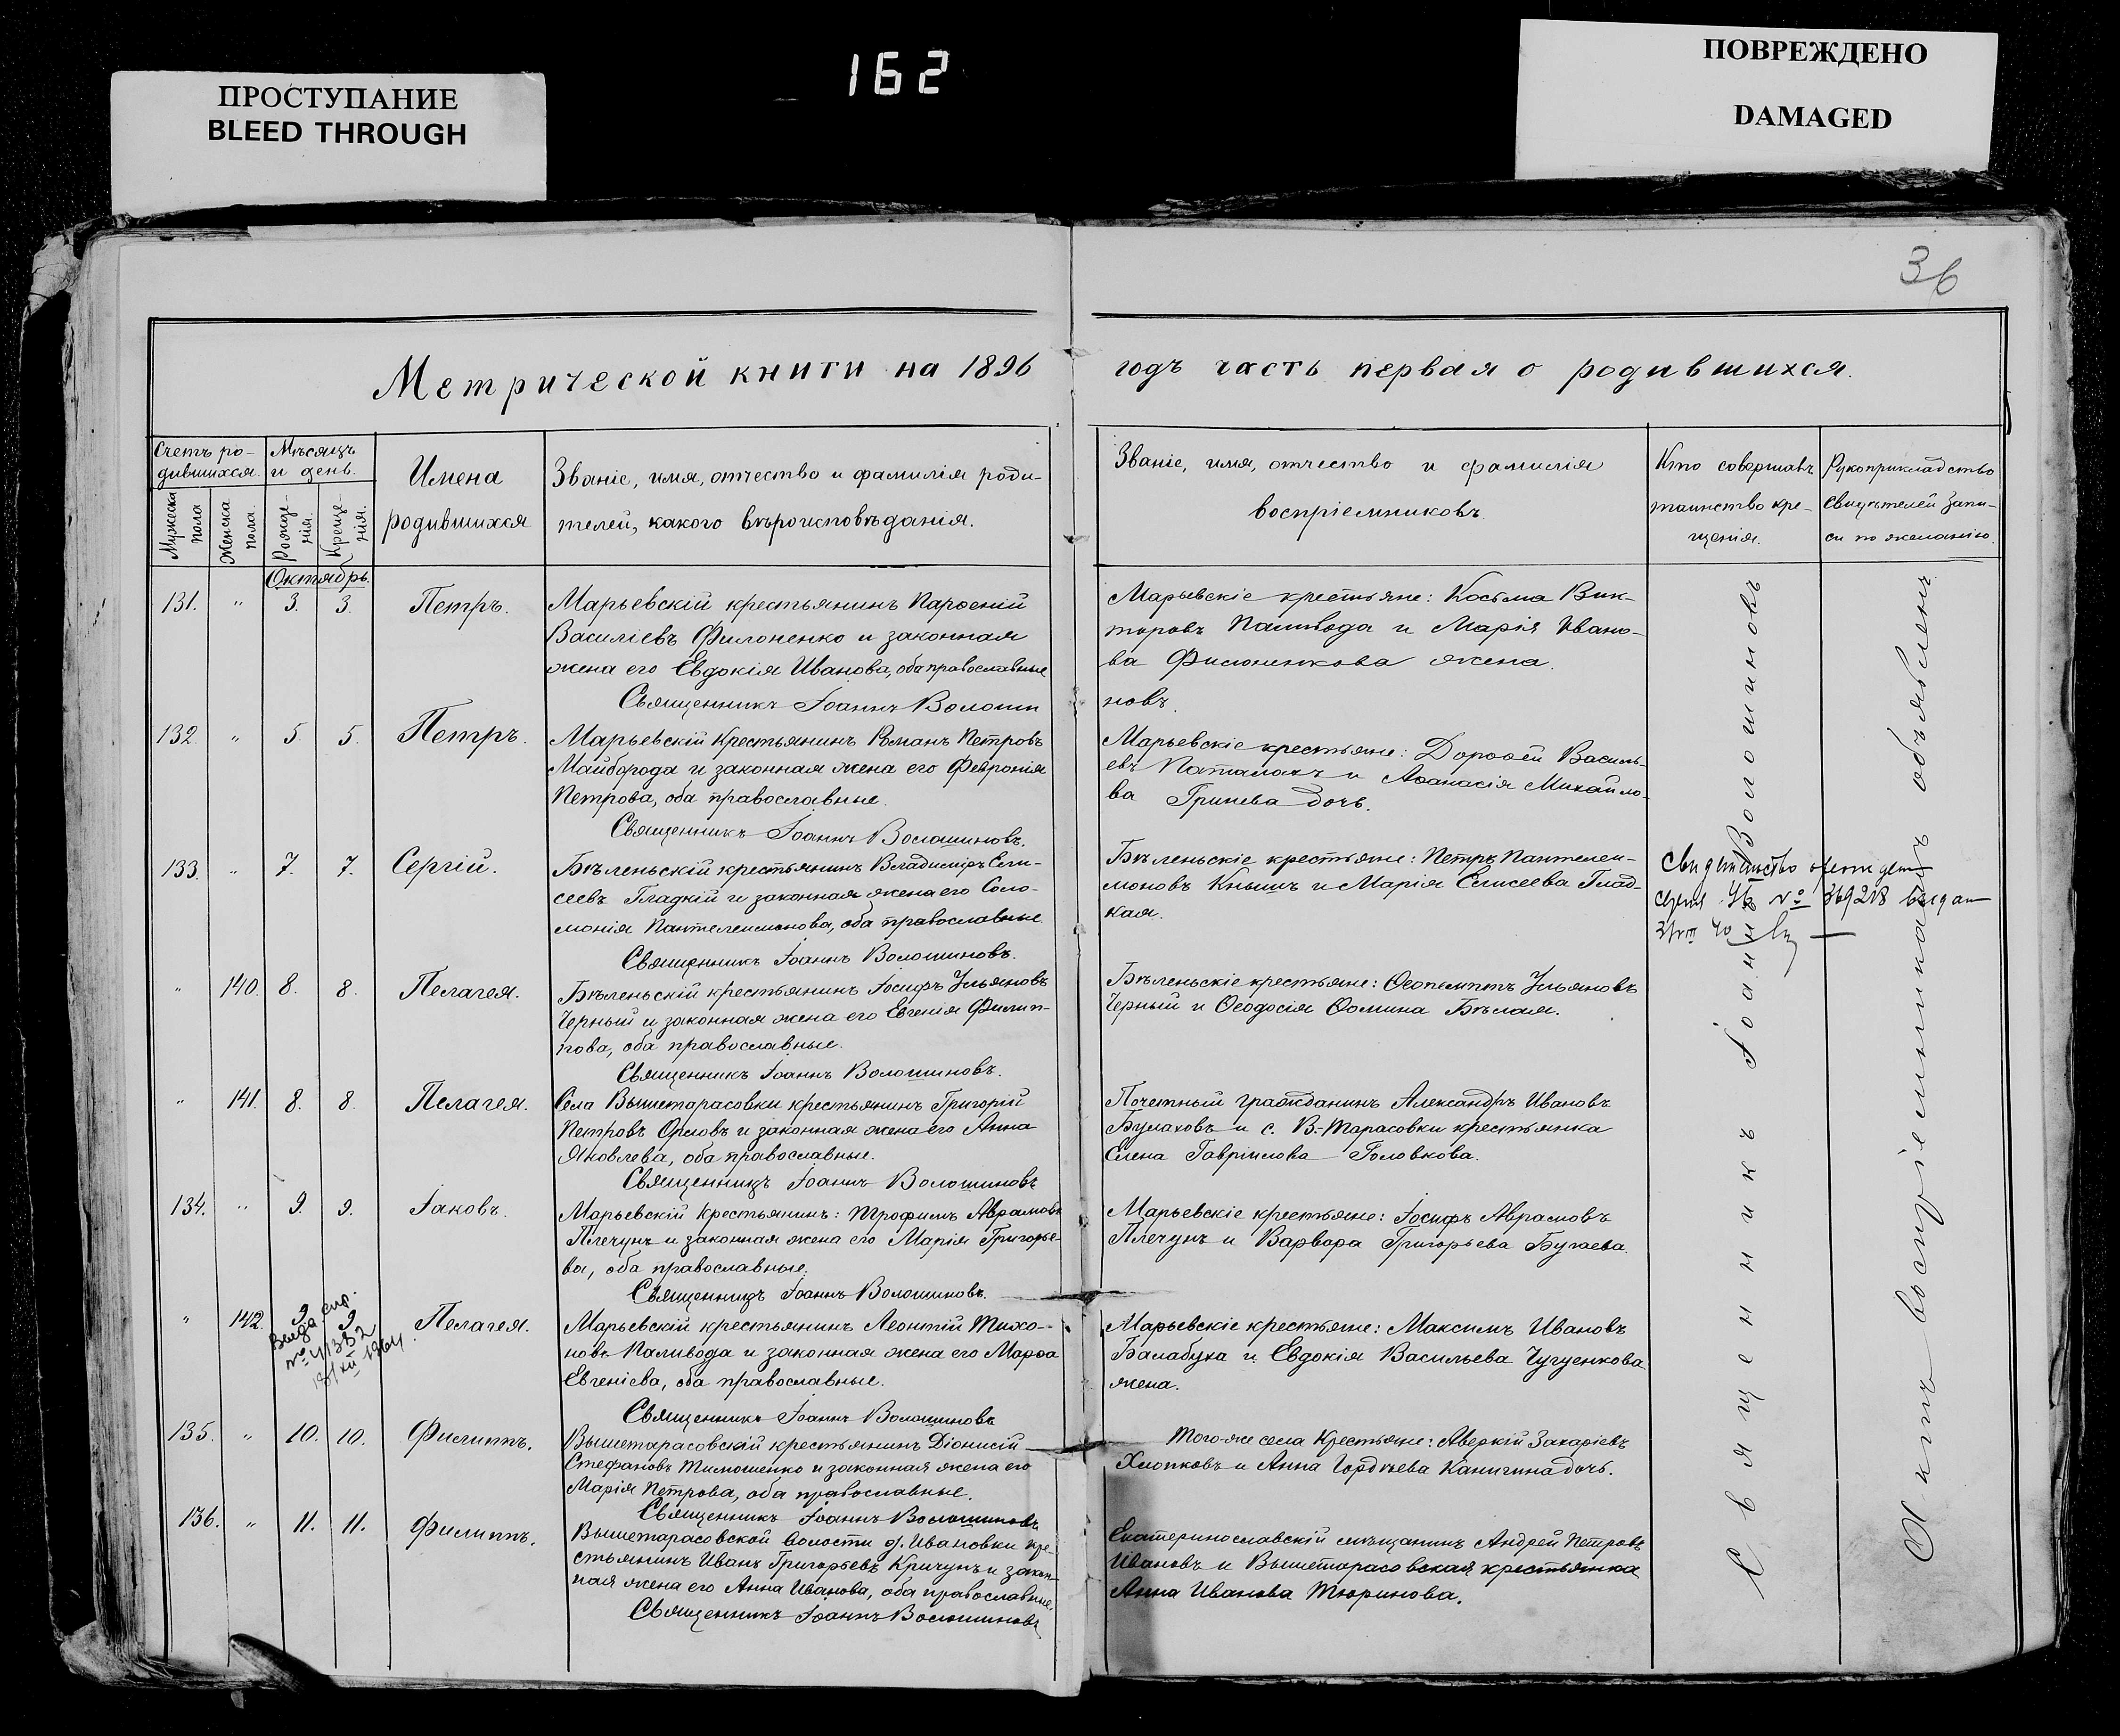 ПРОСТУПАНИЕ
BLEED THROUGH
162
ПОВРЕЖДЕНО
DAMAGED
36
Метрической книги на 1896
годъ часть первая о родившихся.
Счетъ ро-
дившихся.
Мужеска
пола
Женска
пола.
Мѣсяцъ
и день.
Рожде-
нія.
Креще-
нія.
Имена
родившихся
Званіе, имя, отчество и фамилія роди-
телей, какого вѣроисповѣданія.
Званіе, имя, отчество и фамилія
воспріемниковъ.
Кто совершавъ
таинство кре-
щенія.
Рукоприкладство
свидѣтелей запи-
си по желанію.
Октябрь.
131. " 3. 3. Петръ.
Марьевскій крестьянинъ Парѳеній
Василіевъ Филоненко и законная
жена его Евдокія Иванова, оба православные
Священникъ Іоаннъ Волоши
новъ.
Марьевскіе крестьяне: Косьма Вик-
торовъ Паливода и Марія Ивано-
ва Филоненкова жена.
132. " 5. 5. Петръ.
Марьевскій крестьянинъ Романъ Петровъ
Майборода и законная жена его Февронія
Петрова, оба православные.
Священникъ Іоаннъ Волошиновъ.
Марьевскіе крестьяне: Дороѳей Василь-
евъ Паталахъ и Аѳанасія Михайло-
ва Гринева дочь.
133. " 7. 7. Сергій.
Бѣленьскій крестьянинъ Владиміръ Ели-
сеевъ Гладкій и законная жена его Соло-
монія Пантелеимонова, оба православные.
Священникъ Іоаннъ Волошиновъ.
Бѣленьскіе крестьяне: Петръ Пантелеи-
моновъ Кнышъ и Марія Елисеева Глад-
кая.
№ 369218 выдан
" 140. 8. 8. Пелагея.
Бѣленьскій крестьянинъ Іосифъ Ульяновъ
Черный и законная жена его Евгенія Филип-
пова, оба православные.
Священникъ Іоаннъ Волошиновъ.
Бѣленьскіе крестьяне: Ѳеопемптъ Ульяновъ
Черный и Ѳеодосія Ѳомина Бѣлая.
" 141. 8. 8. Пелагея.
Села Вышетарасовки крестьянинъ Григорій
Петровъ Орловъ и законная жена его Анна
Яковлева, оба православные.
Священникъ Іоаннъ Волошиновъ
Почетный гражданинъ Александръ Ивановъ
Булаховъ и с. В.-Тарасовки крестьянка
Елена Гавріилова Головкова.
134. " 9. 9. Іаковъ.
Марьевскій крестьянинъ: Трофимъ Аврамовъ
Плечунъ и законная жена его Марія Григорье-
ва, оба православные.
Священникъ Іоаннъ Волошиновъ.
Марьевскіе крестьяне: Іосифъ Аврамовъ
Плечунъ и Варвара Григорьева Бугаева.
" 142. 9. 9. Пелагея.
Марьевскій крестьянинъ Леонтій Тихо-
новъ Паливода и законная жена его Марѳа
Евгеніева, оба православные.
Священникъ Іоаннъ Волошиновъ
Марьевскіе крестьяне: Максимъ Ивановъ
Балабуха и Евдокія Васильева Чугуенкова
жена.
135. " 10. 10. Филиппъ.
Вышетарасовскій крестьянинъ Діонисій
Стефановъ Тимошенко и законная жена его
Марія Петрова, оба православные.
Священникъ Іоаннъ Волошиновъ
Того-же села крестьяне: Аверкій Захаріевъ
Хлопковъ и Анна Гордѣева Канигина дочь.
136. " 11. 11. Филиппъ.
Вышетарасовской волости д. Ивановки кре-
стьянинъ Иванъ Григорьевъ Кричунъ и закон-
ная жена его Анна Иванова, оба православные.
Священникъ Іоаннъ Волошиновъ
Екатеринославскій мѣщанинъ Андрей Петровъ
Ивановъ и Вышетарасовская крестьянка
Анна Иванова Тюринова.
Священникъ Іоаннъ Волошиновъ
Актъ воспріемникамъ объявленъ